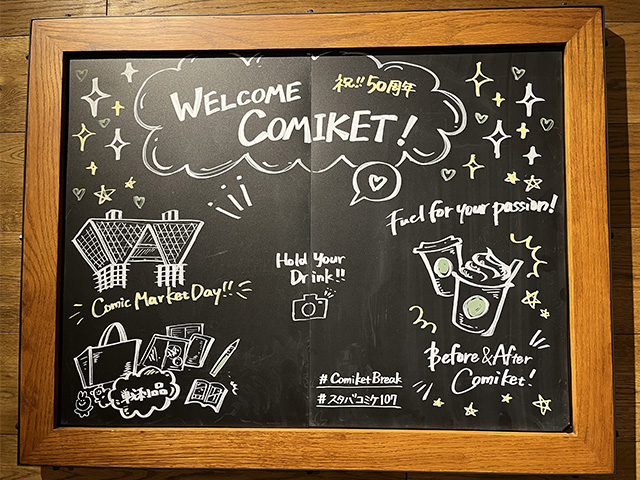 祝!! 50周年
WELCOME
COMIKET!
Fuel for your passion!
Hold Your
Drink!!
Comic Market Day!!
戦利品
Before & After
Comiket!
# ComiketBreak
# スタバコミケ107